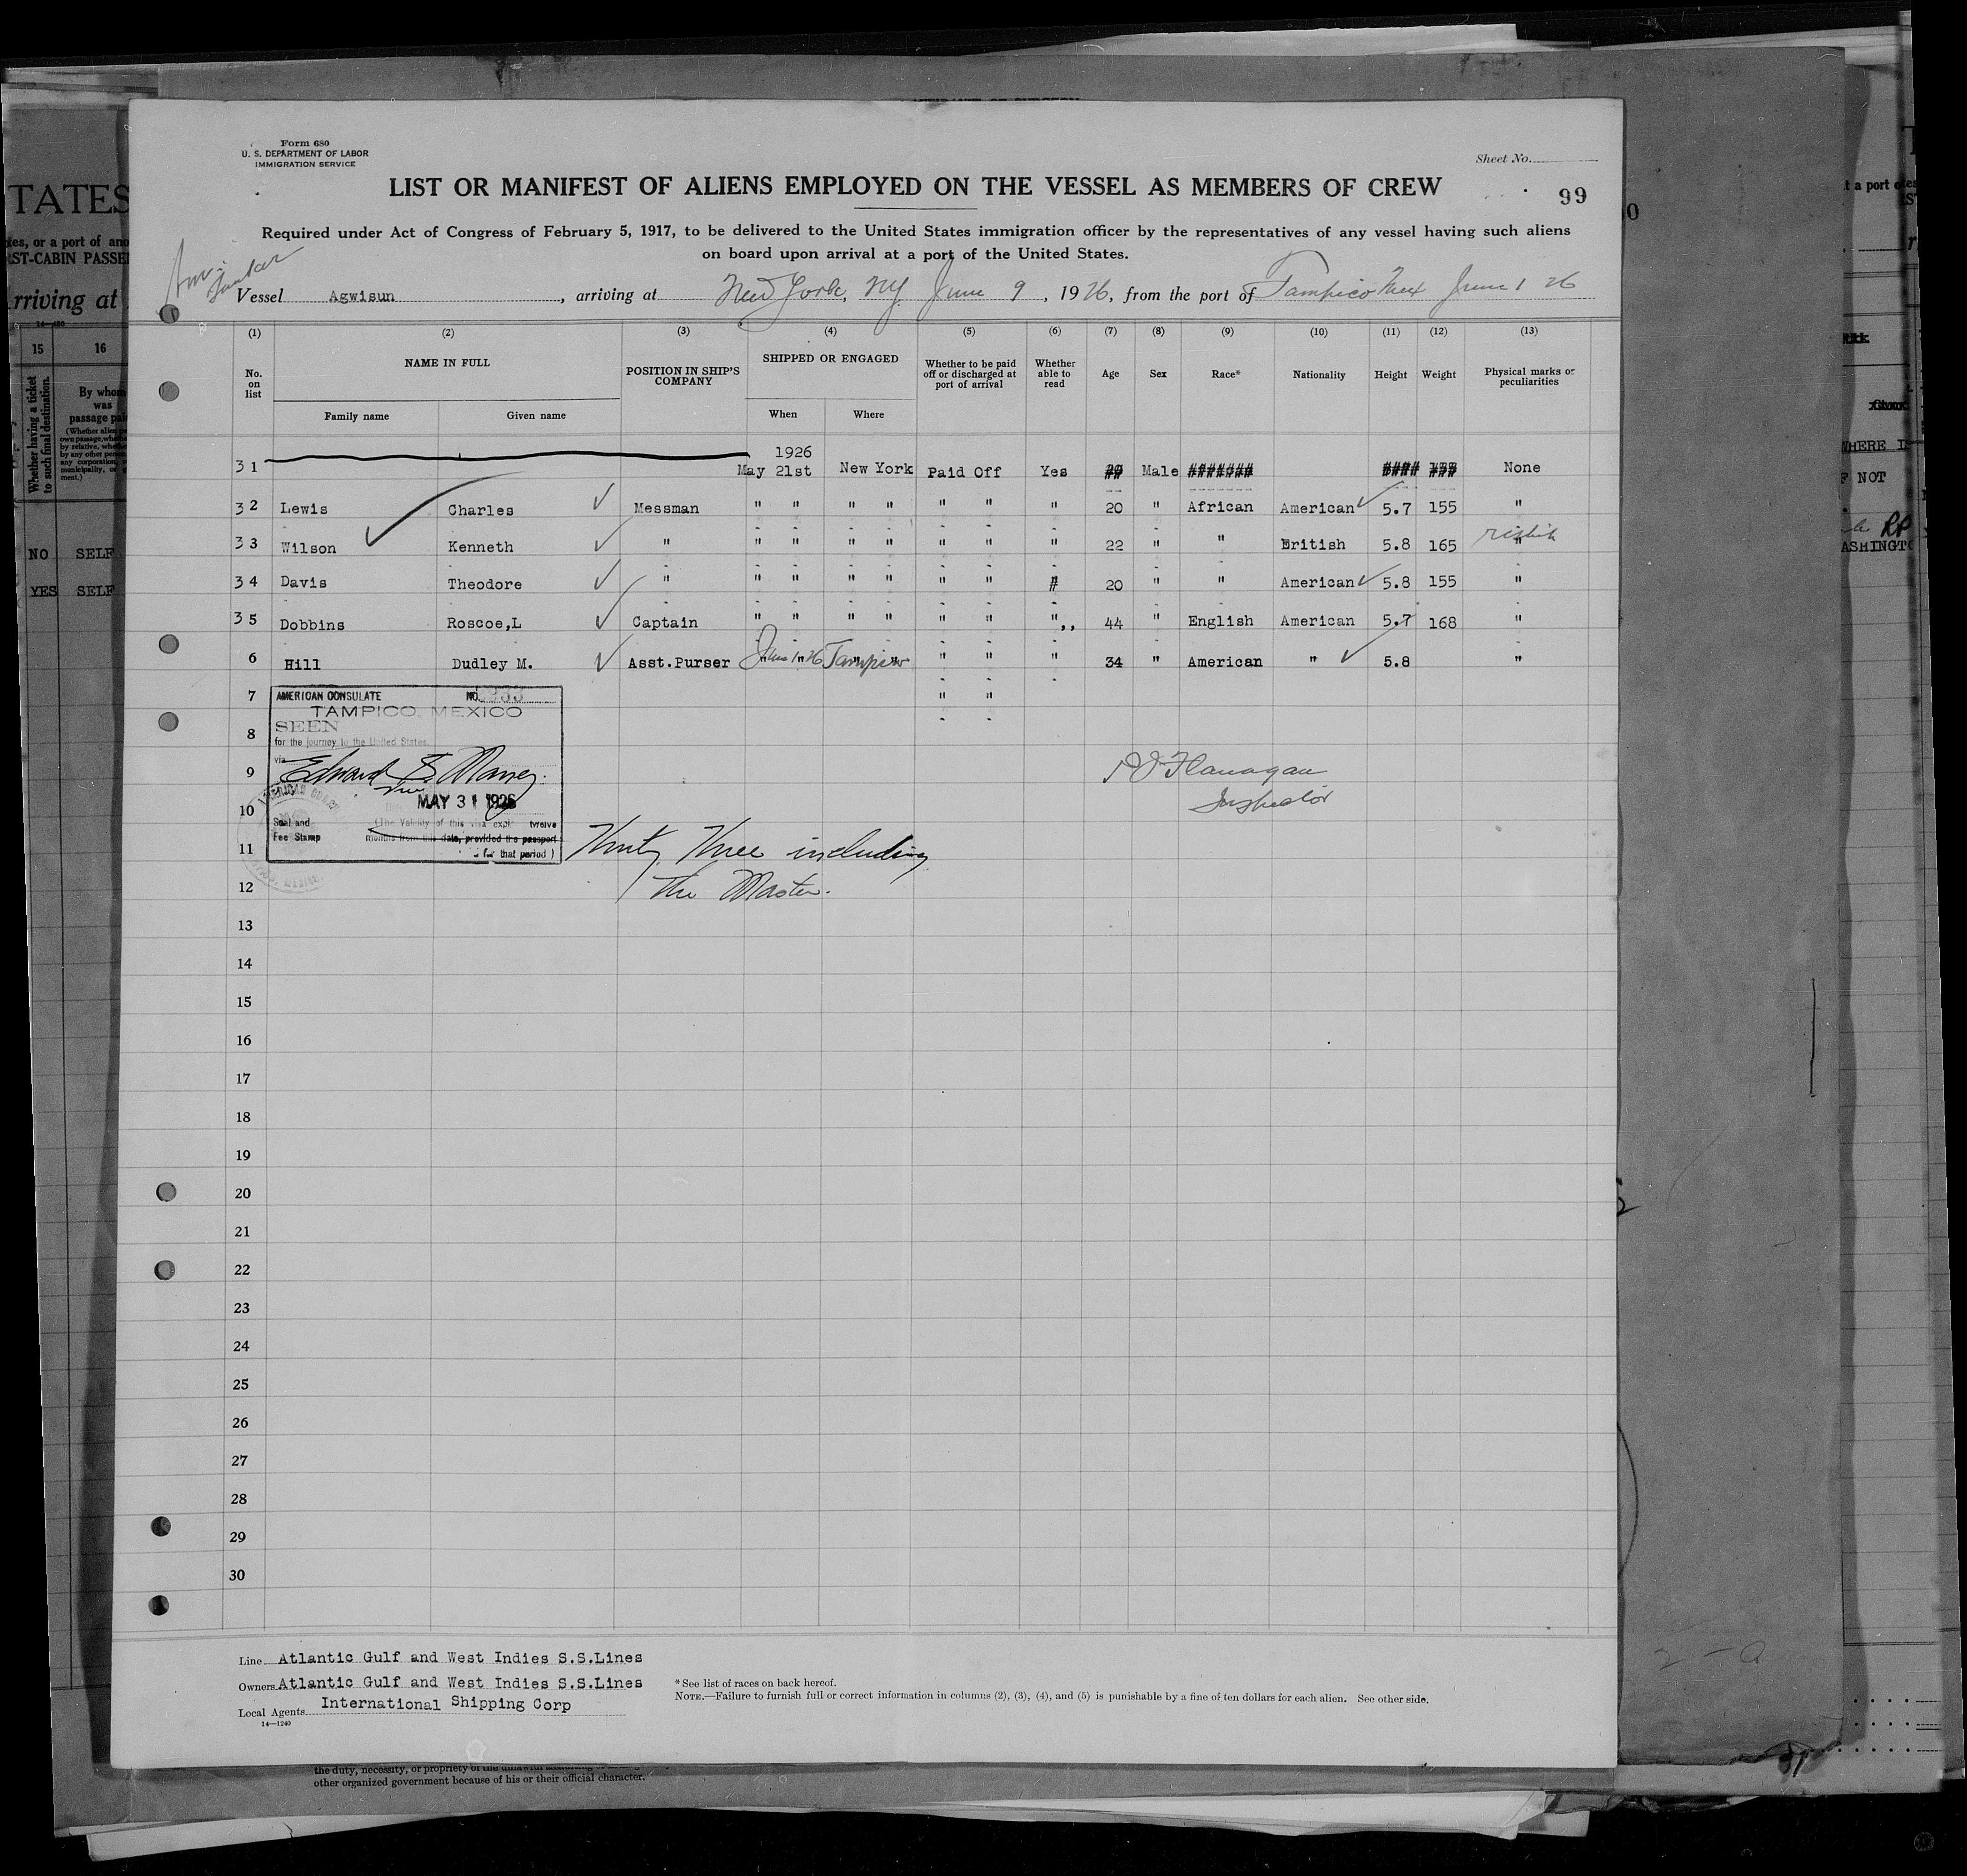 Form 680
U. S. DEPARTMENT OF LABOR
IMMIGRATION SERVICE
Sheet No.
LIST OR MANIFEST OF ALIENS EMPLOYED ON THE VESSEL AS MEMBERS OF CREW
99
Required under Act of Congress of February 5, 1917, to be delivered to the United States immigration officer by the representatives of any vessel having such aliens
on board upon arrival at a port of the United States.
Vessel Agwisun, arriving at New York, NY June 9, 1926, from the port of Tampico Mex June 1 26
(1) (2) (3) (4) (5) (6) (7) (8) (9) (10) (11) (12) (13)
No. on list NAME IN FULL POSITION IN SHIP'S COMPANY SHIPPED OR ENGAGED Whether to be paid off or discharged at port of arrival Whether able to read Age Sex Race* Nationality Height Weight Physical marks or peculiarities
Family name Given name When Where
1926
31 May 21st New York Paid Off Yes Male ####### #### None
32 Lewis Charles Messman " " " " " " " 20 " African American 5.7 155 "
33 Wilson Kenneth " " " " " " " " 22 " " British 5.8 165 "
34 Davis Theodore " " " " " " " # 20 " " American 5.8 155 "
35 Dobbins Roscoe,L Captain " " " " " " ",, 44 " English American 5.7 168 "
6 Hill Dudley M. Asst.Purser June 1 26 Tampico " " " 34 " American " 5.8 "
7 " "
AMERICAN CONSULATE NO.
TAMPICO, MEXICO
SEEN
for the journey to the United States.
via
MAY 31 1926
Seal and
Fee Stamp
(The Validity of this visa twelve
months from this date, provided the passport
for that period )
8
9 Flanagan
10 Inspector
11 Thirty Three including
12 The Master.
13
14
15
16
17
18
19
20
21
22
23
24
25
26
27
28
29
30
Line Atlantic Gulf and West Indies S.S.Lines
Owners Atlantic Gulf and West Indies S.S.Lines
Local Agents International Shipping Corp
14—1240
* See list of races on back hereof.
NOTE.—Failure to furnish full or correct information in columns (2), (3), (4), and (5) is punishable by a fine of ten dollars for each alien. See other side.
TATES
ST-CABIN
rriving at
15 16
Whether having a ticket
to such final destination.
By whom
was
NO SELF
YES SELF
the duty, necessity, or propriety of the
other organized government because of his or their official character.